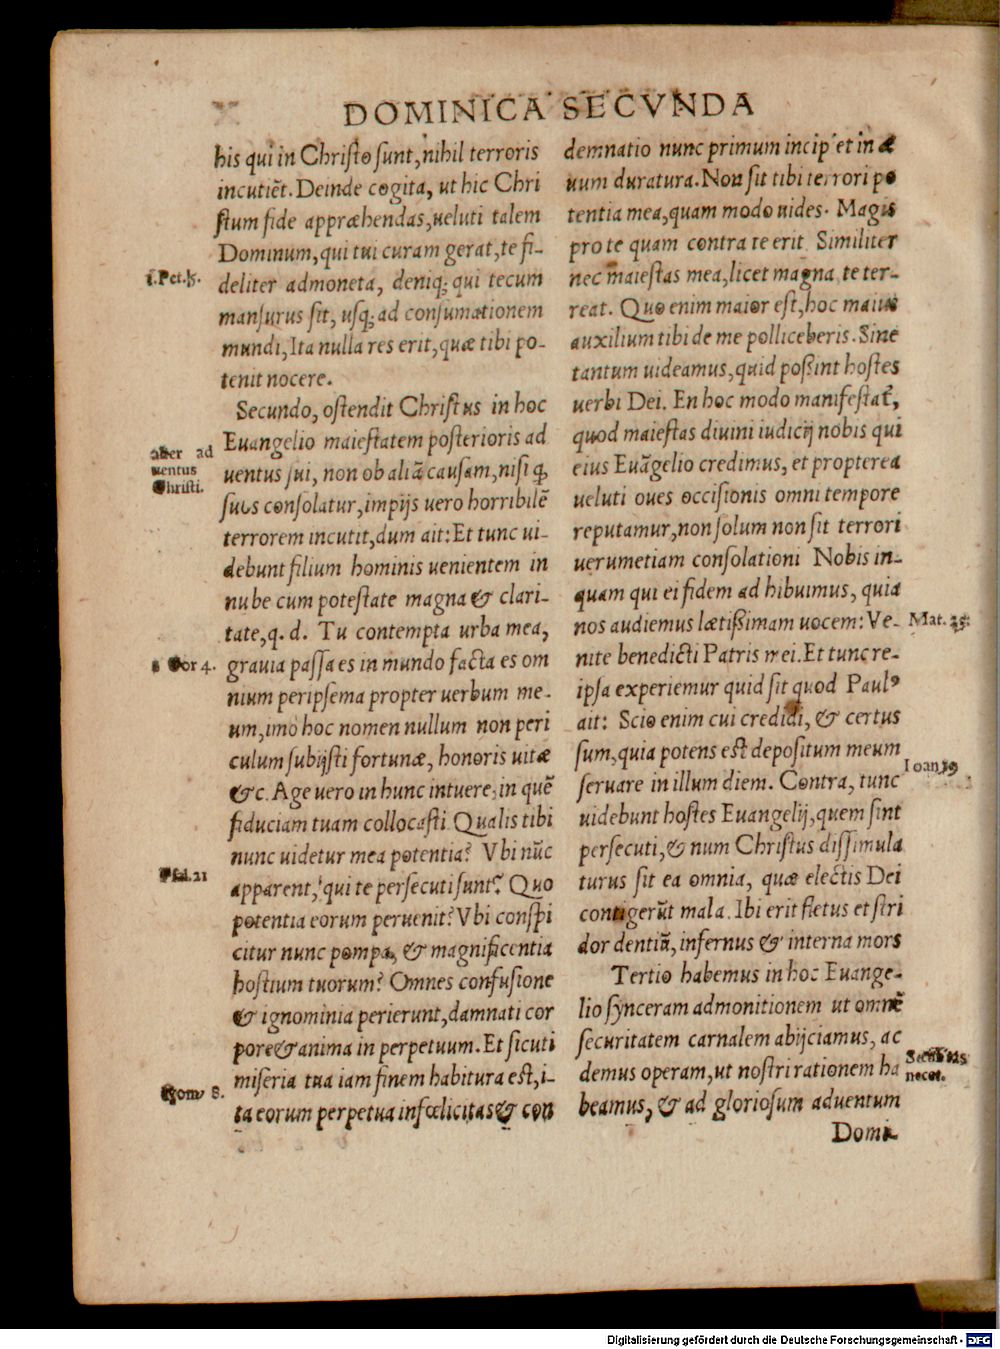 DOMINICA SECVNDA
his qui in Christo sunt, nihil terroris
incutiēt. Deinde cogita, ut hic Chri
stum fide appræhendas, ueluti talem
Dominum, qui tui curam gerat, te fi-
1.Pet.5.
deliter admoneta, deniq; qui tecum
mansurus sit, usq; ad consumationem
mundi, Ita nulla res erit, quæ tibi po-
tenit nocere.
Secundo, ostendit Christus in hoc
Euangelio maiestatem posterioris ad
alter ad
uentus
Christi.
uentus sui, non ob aliā causam, nisi q
suos consolatur, impijs uero horribilē
terrorem incutit, dum ait: Et tunc ui-
debunt filium hominis uenientem in
nube cum potestate magna & clari-
tate, q. d. Tu contempta urba mea,
Cor 4.
grauia passa es in mundo facta es om
nium peripsema propter uerbum me-
um, imò hoc nomen nullum non peri
culum subijsti fortunæ, honoris uitæ
&c. Age uero in hunc intuere, in quē
fiduciam tuam collocasti. Qualis tibi
nunc uidetur mea potentia? Vbi nūc
Psal.21
apparent, qui te persecuti sunt? Quo
potentia eorum peruenit? Vbi conspi
citur nunc pompa, & magnificentia
hostium tuorum? Omnes confusione
& ignominia perierunt, damnati cor
pore & anima in perpetuum. Et sicuti
Rom. 8.
miseria tua iam finem habitura est, i-
ta eorum perpetua infœlicitas & con
demnatio nunc primum incipiet in æ
uum duratura. Non sit tibi terrori po
tentia mea, quam modo uides. Magis
pro te quam contra te erit. Similiter
nec maiestas mea, licet magna, te ter-
reat. Quo enim maior est, hoc maius
auxilium tibi de me polliceberis. Sine
tantum uideamus, quid poßint hostes
uerbi Dei. En hoc modo manifestat̄,
quod maiestas diuini iudicij nobis qui
eius Euāgelio credimus, et propterea
ueluti oues occisionis omni tempore
reputamur, non solum non sit terrori
uerumetiam consolationi Nobis in-
quam qui ei fidem ad hibuimus, quia
nos audiemus lætißimam uocem: Ve-
Mat. 25.
nite benedicti Patris mei. Et tunc re-
ipsa experiemur quid sit quod Paulꝰ
ait: Scio enim cui credidi, & certus
sum, quia potens est depositum meum
Ioan 19
seruare in illum diem. Contra, tunc
uidebunt hostes Euangelij, quem sint
persecuti, & num Christus dissimula
turus sit ea omnia, quæ electis Dei
contigerūt mala. Ibi erit fletus et stri
dor dentiū, infernus & interna mors
Tertio habemus in hoc Euange-
lio synceram admonitionem ut omnē
securitatem carnalem abijciamus, ac
demus operam, ut nostri rationem ha
nocet.
beamus, & ad gloriosum aduentum
Domi-
Digitalisierung gefördert durch die Deutsche Forschungsgemeinschaft - DFG